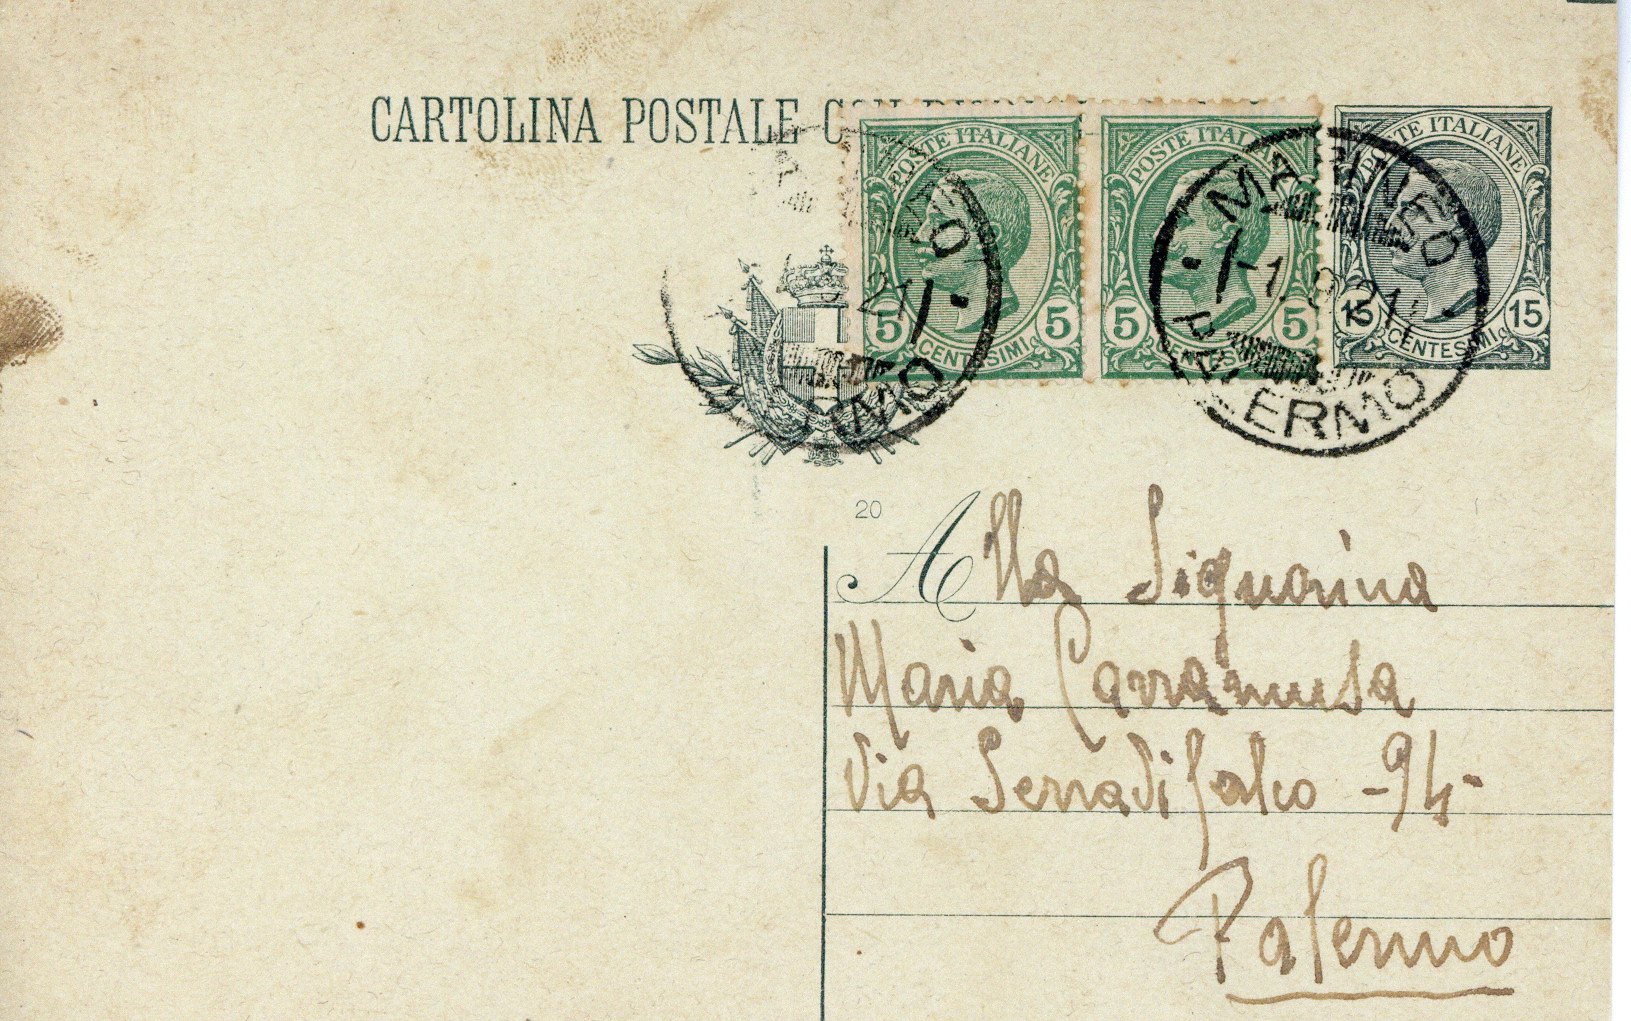 CARTOLINA POSTALE
POSTE ITALIANE
5 5
CENTESIMI
POSTE ITALIANE
5 5
CENTESIMI
POSTE ITALIANE
15 15
CENTESIMI
21
MARINEO
PALERMO
20
Alla Signorina
Maria Carramusa
Via Serradifalco - 94 -
Palermo